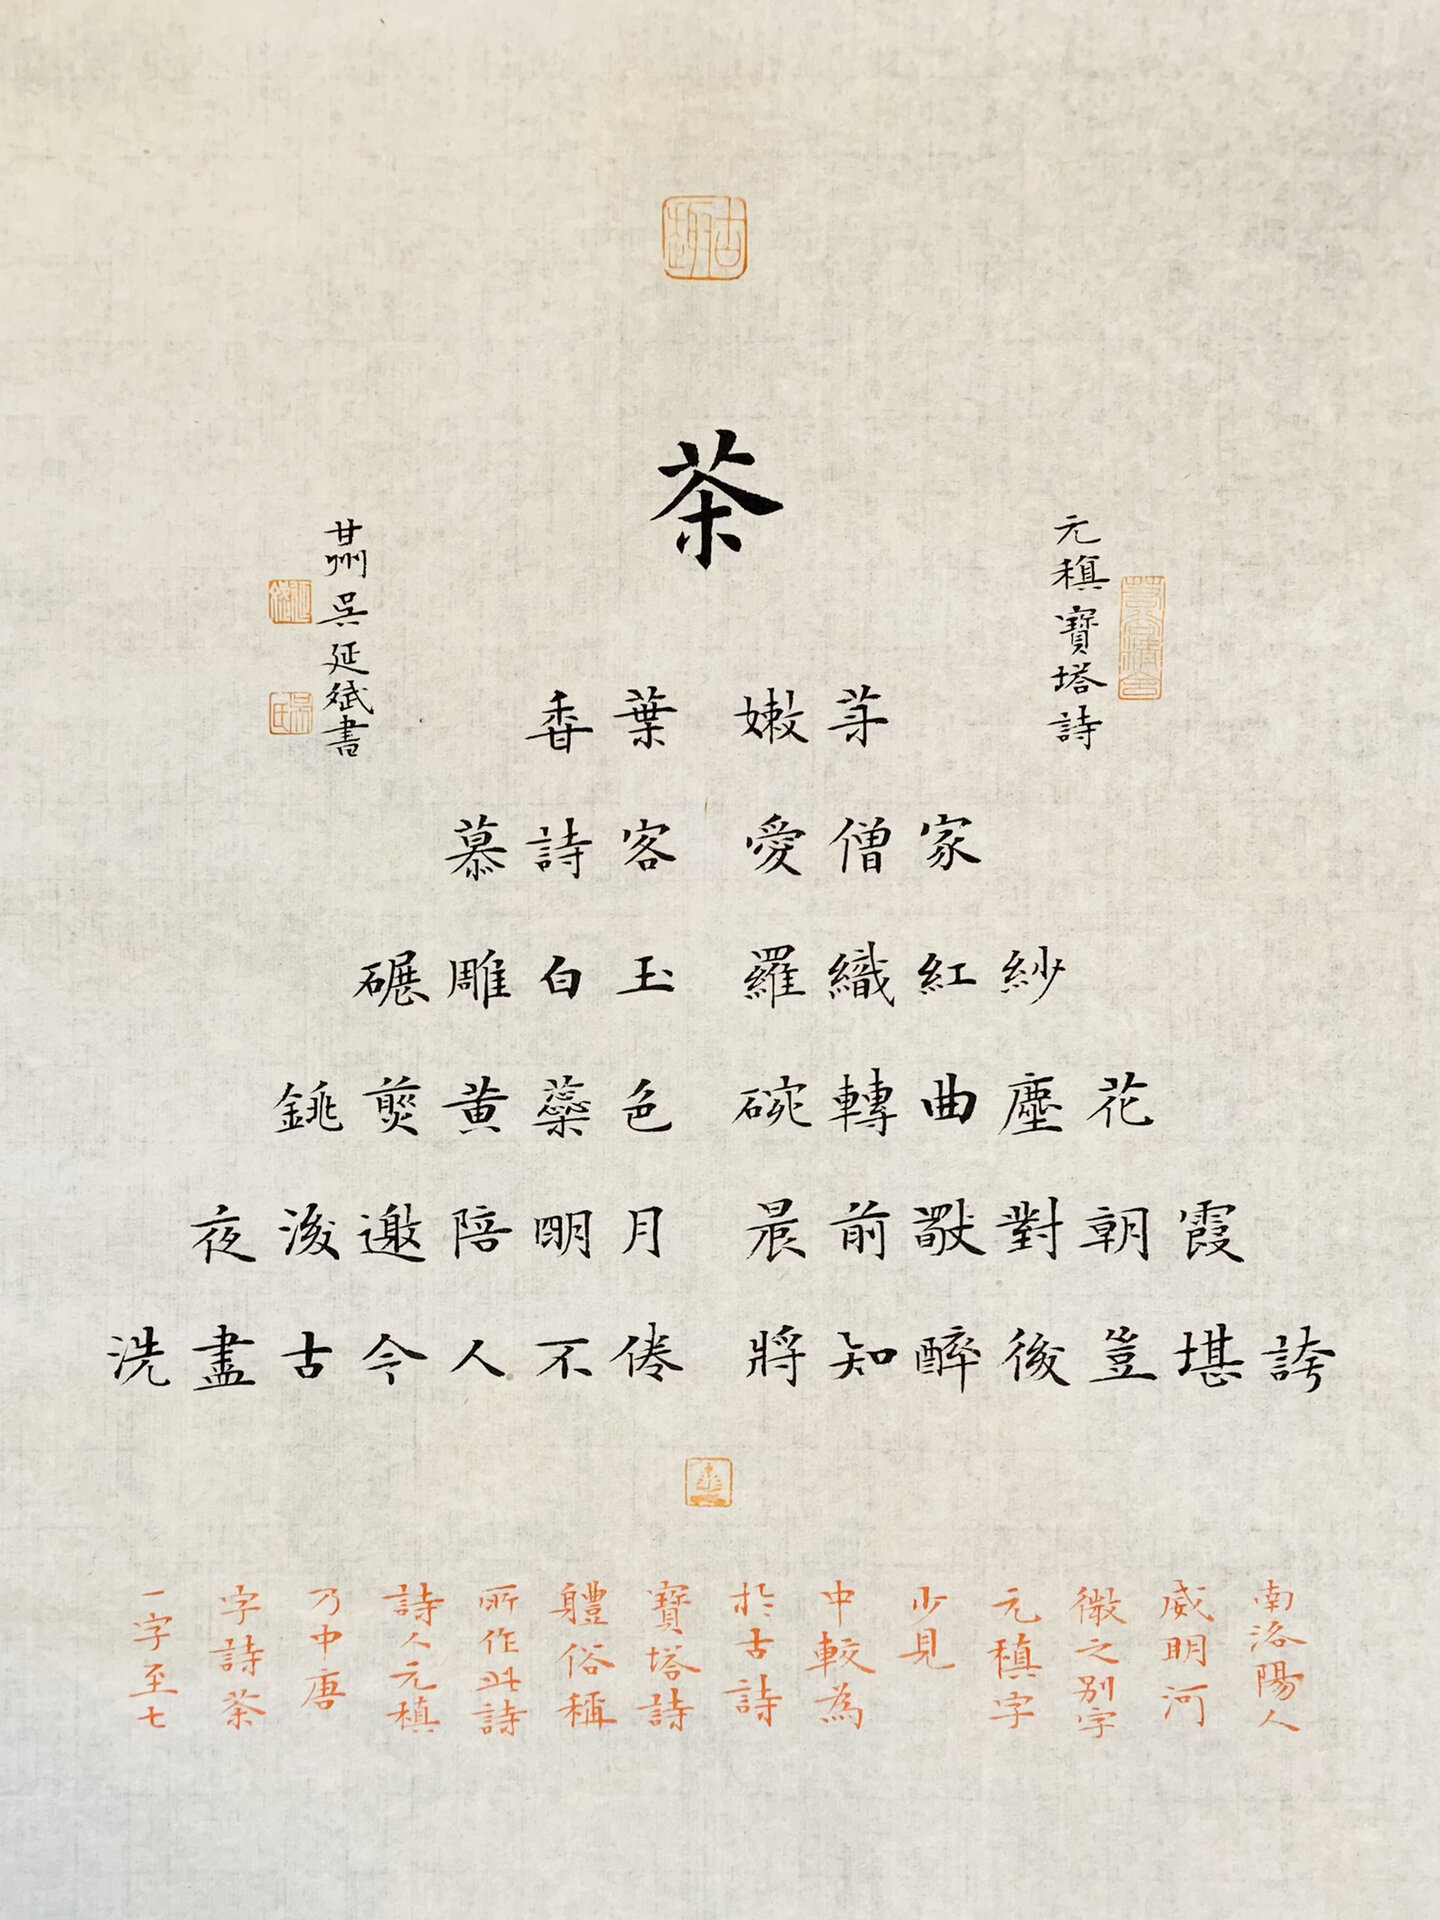 古趣
茶
元稹寶塔詩
香葉 嫩芽
慕詩客 愛僧家
碾雕白玉 羅織紅紗
銚煎黄蘂色 碗轉曲塵花
夜後邀陪明月 晨前獨對朝霞
洗盡古今人不倦 將知醉後豈堪誇
甘州吳延斌書
一字至七
字詩茶
乃中唐
詩人元稹
所作此詩
軆俗稱
寶塔詩
於古詩
中較為
少見
元稹字
微之别字
威明河
南洛陽人